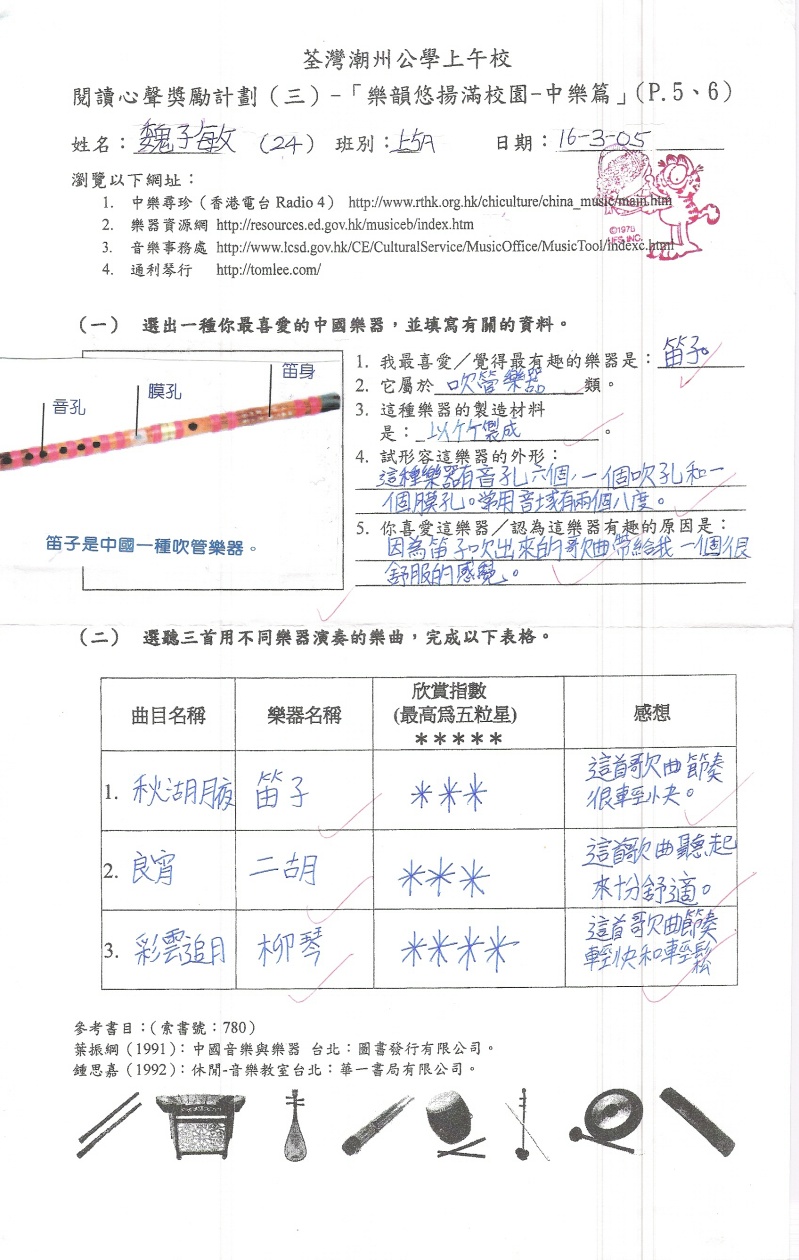 荃灣潮州公學上午校
閱讀心聲獎勵計劃（三）-「樂韻悠揚滿校園-中樂篇」(P.5、6)
姓名：魏子敏 （24） 班別：上5A 日期：16-3-05
瀏覽以下網址：
1. 中樂尋珍（香港電台 Radio 4） http://www.rthk.org.hk/chiculture/china_music/main.htm
2. 樂器資源網 http://resources.ed.gov.hk/musiceb/index.htm
3. 音樂事務處 http://www.lcsd.gov.hk/CE/CulturalService/MusicOffice/MusicTool/indexc.html
4. 通利琴行 http://tomlee.com/
©1978
UFS, INC.
（一） 選出一種你最喜愛的中國樂器，並填寫有關的資料。
音孔
膜孔
笛身
笛子是中國一種吹管樂器。
1. 我最喜愛／覺得最有趣的樂器是：笛子。
2. 它屬於 吹管樂器 類。
3. 這種樂器的製造材料
是：以竹製成。
4. 試形容這樂器的外形：
這種樂器有音孔六個，一個吹孔和一
個膜孔。常用音域有兩個八度。
5. 你喜愛這樂器／認為這樂器有趣的原因是：
因為笛子吹出來的歌曲帶給我一個很
舒服的感覺。
（二） 選聽三首用不同樂器演奏的樂曲，完成以下表格。
曲目名稱 樂器名稱 欣賞指數 感想
(最高爲五粒星)
＊＊＊＊＊
1. 秋湖月夜 笛子 ＊＊＊ 這首歌曲節奏
很輕快。
2. 良宵 二胡 ＊＊＊ 這首歌曲聽起
來十分舒適。
3. 彩雲追月 柳琴 ＊＊＊＊ 這首歌曲節奏
輕快和輕鬆
參考書目：（索書號：780）
葉振綱（1991）：中國音樂與樂器 台北：圖書發行有限公司。
鍾思嘉（1992）：休閒-音樂教室台北：華一書局有限公司。